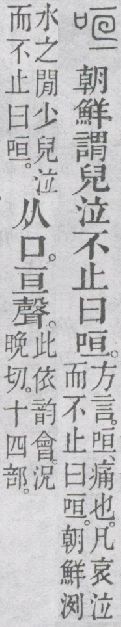 咺 朝鮮謂兒泣不止曰咺。
方言。咺、痛也。凡哀泣
而不止曰咺。朝鮮洌
水之閒少兒泣
而不止曰咺。
从口。亘聲。
此依韵會。況
晚切。十四部。